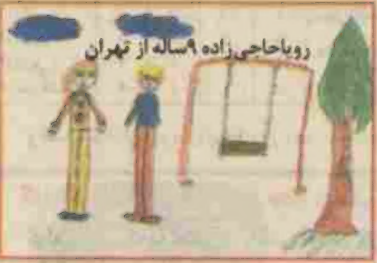 رویا حاجی‌زاده ۹ساله از تهران